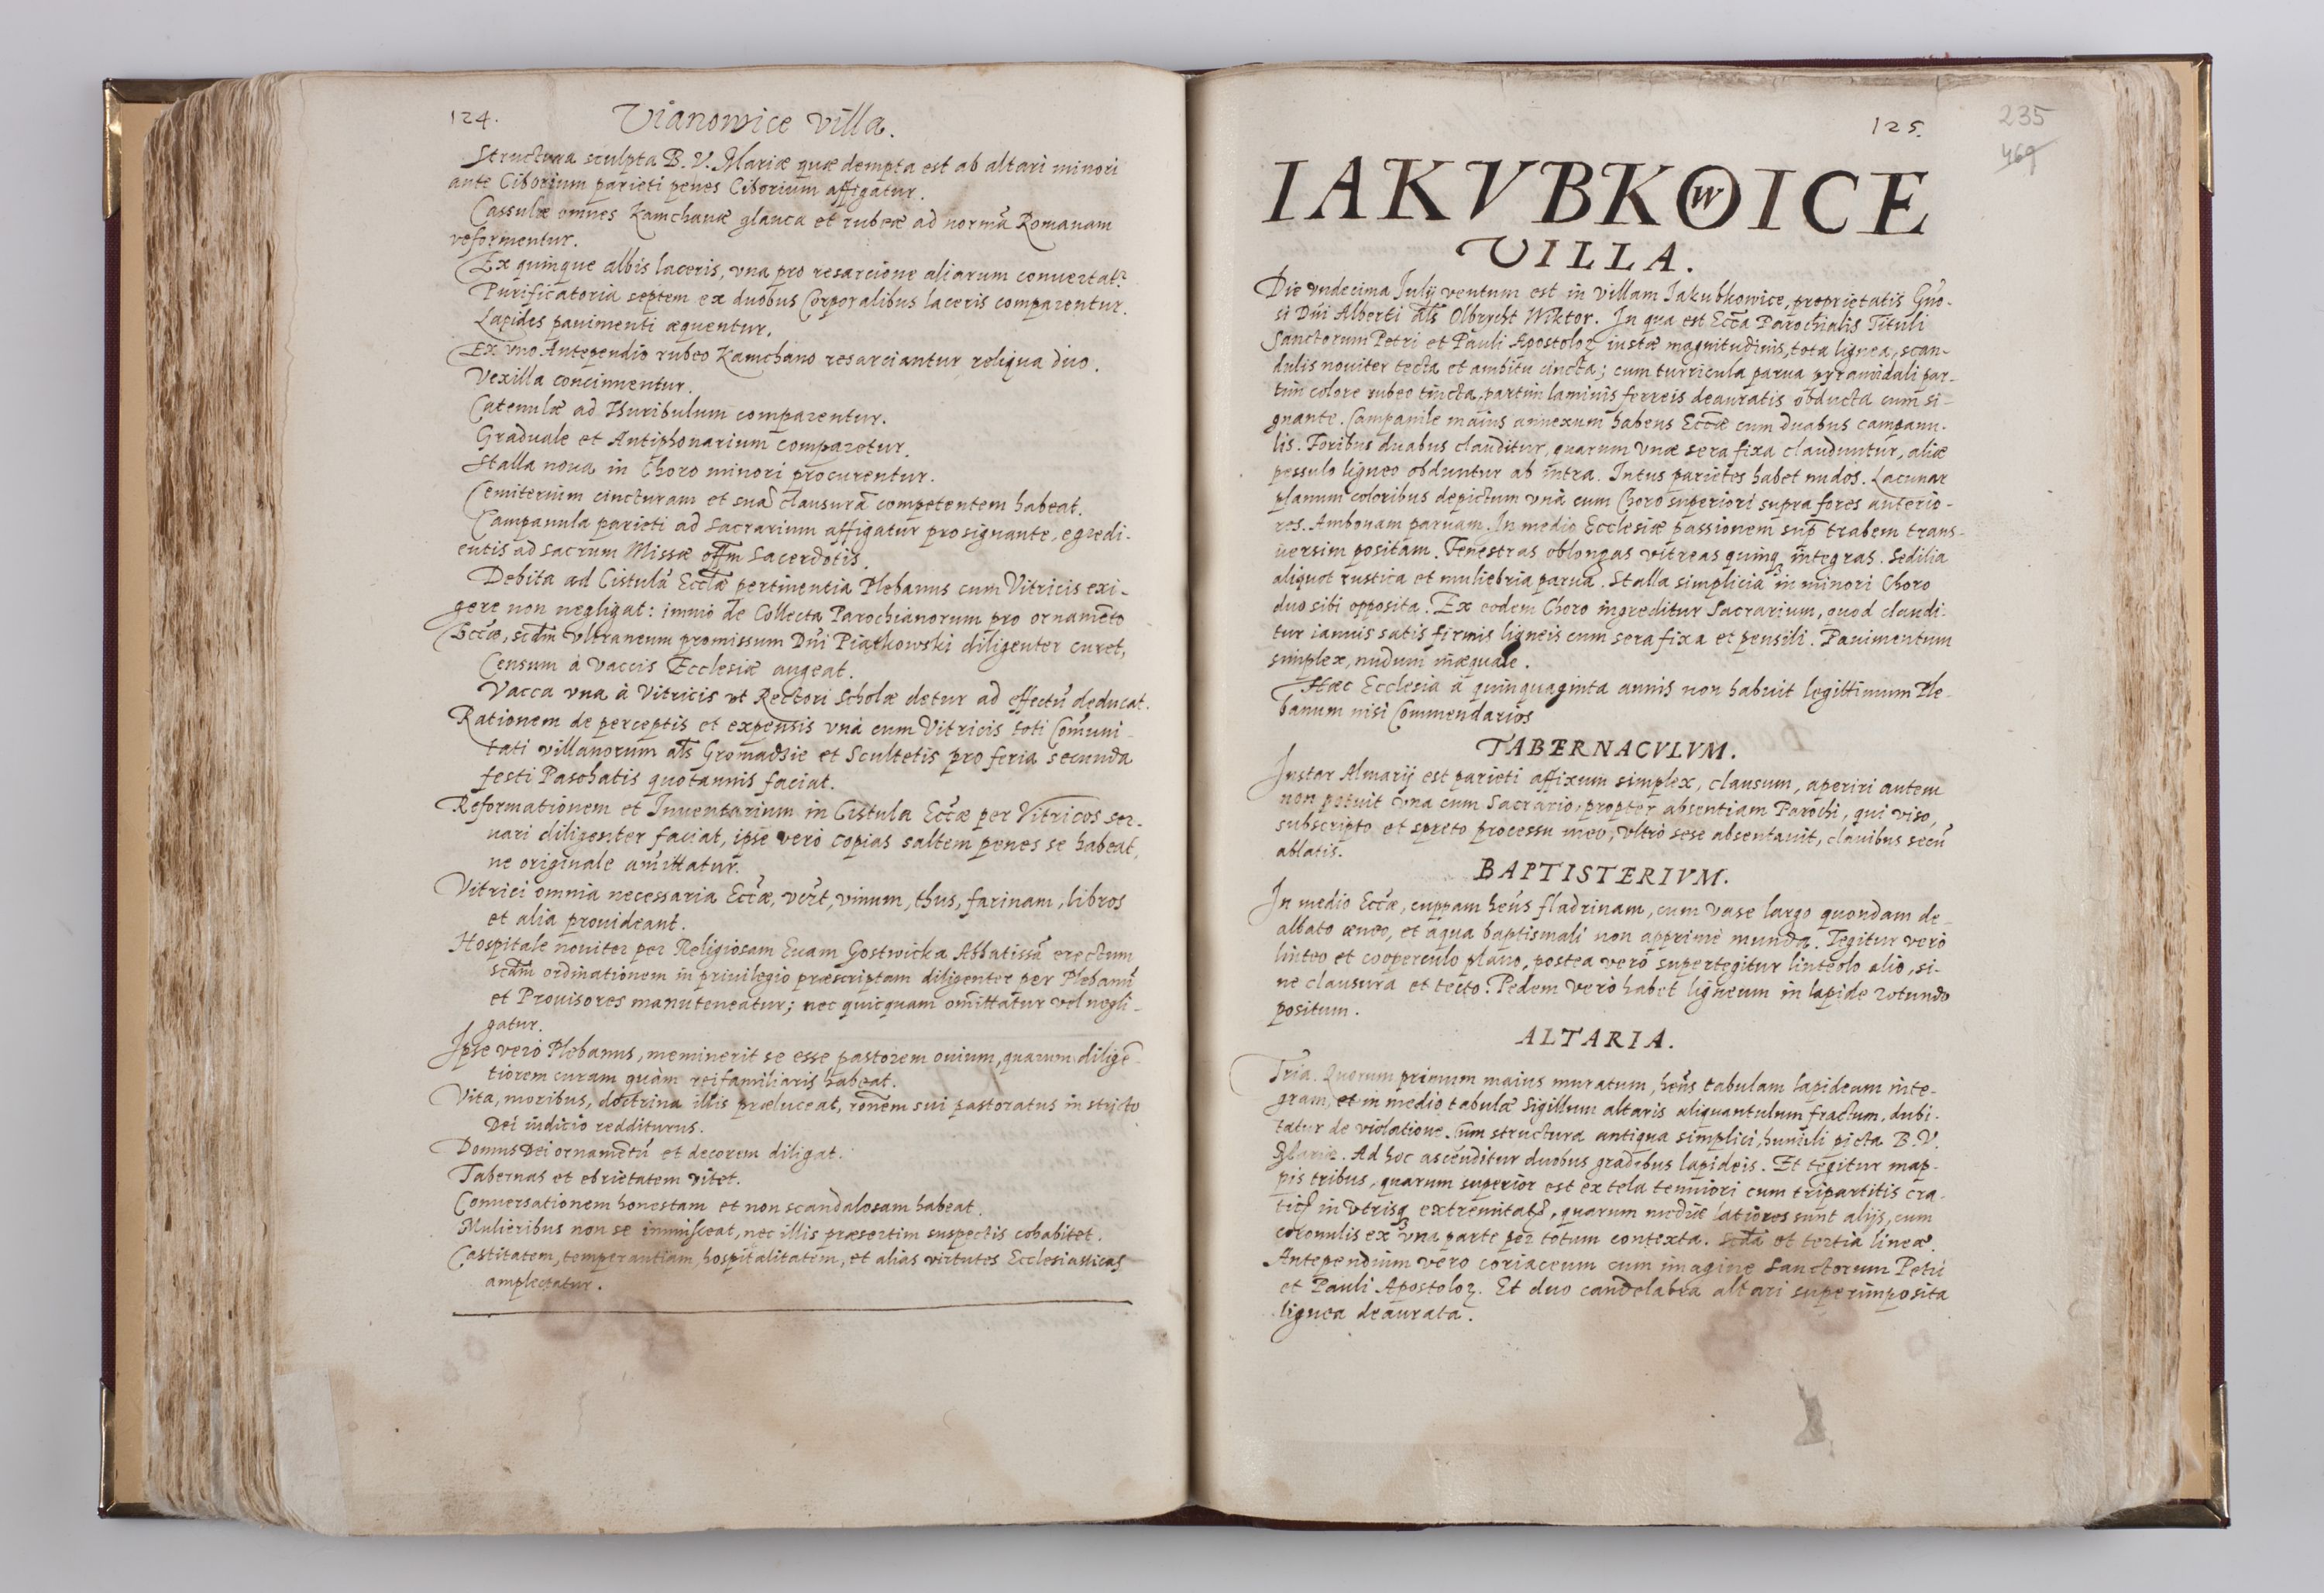 124.
Vianowice villa.
Structura sculpta B. V. Mariæ quæ dempta est ab altari minori
ante Ciborium parieti penes Ciborium affigatur.
Cassulæ omnes Kamchanæ glauca et rubeæ ad normã Romanam
reformentur.
Ex quinque albis laceris, vna pro resarcione aliarum conuertat.
Purificatoria septem ex duobus Corporalibus laceris comparentur.
Lapides pauimenti æquentur.
Ex vno Antependio rubeo Kamchano resarciantur reliqua duo.
Vexilla concinnentur.
Catenulæ ad Thuribulum comparentur.
Graduale et Antiphonarium comparetur.
Stalla noua in Choro minori procurentur.
Cemiterium cincturam et suã clausurã competentem habeat.
Campanula parieti ad Sacrarium affigatur pro signante, egredi-
entis ad sacrum Missæ offm Sacerdotis.
Debita ad Cistulã Eccłæ pertinentia Plebanus cum Vitricis exi-
gere non negligat: immò de Collecta Parochianorum pro ornamẽto
Eccæ, scdm vltraneum promissum Dñi Piątkowski diligenter curet,
Censum à vaccis Ecclesiæ augeat.
Vacca vna à Vitricis vt Rectori Scholæ detur ad effectũ deducat.
Rationem de perceptis et expensis vnà cum Vitricis toti Com̃uni-
tati villanorum als Gromadzie et Scultetis pro feria secunda
festi Paschatis quotannis faciat.
Reformationem et Inuentarium in Cistula Eccæ per Vitricos ser-
uari diligenter faciat, ipse verò copias saltem penes se habeat,
ne originale amittatur.
Vitrici omnia necessaria Eccæ, vert, vinum, thus, farinam, libros
et alia prouideant.
Hospitale nouiter per Religiosam Euam Gostwicka Abbatissã erectum
scdm ordinationem in priuilegio præscriptam diligenter per Plebanũ
et Prouisores manuteneatur; nec quicquam omittatur vel negli-
gatur.
Ipse verò Plebanus, meminerit se esse pastorem ouium, quarum diligẽ-
tiorem curam quàm rei familiaris habeat.
Vita, moribus, doctrina illis præluceat, ronem sui pastoratus in stricto
Dei iudicio redditurus.
Domus Dei ornamẽtũ et decorem diligat.
Tabernas et ebrietatem vitet.
Conuersationem honestam et non scandalosam habeat.
Mulieribus non se immisceat, nec illis præsertim suspectis cohabitet.
Castitatem, temperantiam, hospitalitatem, et alias virtutes Ecclesiasticas
amplectatur.
125.
235
469
IAKVBKOWICE
VILLA.
Die vndecima Julij ventum est in villam Iakubkowice, proprietatis Gño-
si Dñi Alberti als Olbrycht Wiktor. In qua est Ecca Parochialis Tituli
Sanctorum Petri et Pauli Apostoloꝝ iustæ magnitudinis, tota lignea, scan-
dulis nouiter tecta et ambitu cincta; cum turricula parua pyramidali par-
tim colore rubeo tincta, partim laminis ferreis deauratis obducta cum si-
gnante. Campanile maius annexum habens Eccæ cum duabus campanu-
lis. Foribus duabus clauditur, quarum vnæ sera fixa clauduntur, aliæ
pessulo ligneo obduntur ab intra. Intus parietes habet nudos. Lacunar
planum coloribus depictum vnà cum Choro superiori supra fores anterio-
res. Ambonam paruam. In medio Ecclesiæ passionem sup trabem trans-
uersim positam. Fenestras oblongas vitreas quinqꝫ integras. Sedilia
aliquot rustica et muliebria parua. Stalla simplicia in minori Choro
duo sibi opposita. Ex eodem Choro ingreditur Sacrarium, quod claudi-
tur ianuis satis firmis ligneis cum sera fixa et pensili. Pauimentum
simplex, nudum inæquale.
Hæc Ecclesia à quinquaginta annis non habuit legittimum Ple-
banum nisi Commendarios
TABERNACVLVM.
Instar Almarij est parieti affixum simplex, clausum, aperiri autem
non potuit vna cum Sacrario, propter absentiam Parochi, qui viso,
subscripto et spreto processu meo, vltrò sese absentauit, clauibus secũ
ablatis.
BAPTISTERIVM.
In medio Eccæ, cuppam hẽns fladrinam, cum vase largo quondam de-
albato æneo, et aqua baptismali non apprimè munda. Tegitur verò
linteo et cooperculo plano, postea verò supertegitur linteolo alio, si-
ne clausura et tecto. Pedem verò habet ligneum in lapide rotundo
positum.
ALTARIA.
Tria. Quorum primum maius muratum, hẽns tabulam lapideam inte-
gram, et in medio tabulæ Sigillum altaris aliquantulum fractum, dubi-
tatur de violatione. Cum structura antiqua simplici, humili picta B. V.
Mariæ. Ad hoc ascenditur duobus gradibus lapideis. Et tegitur map-
pis tribus, quarum superior est ex tela tenuiori cum tripartitis cra-
ticꝭ in vtrisqꝫ extremitatꝭ, quarum mediæ latiores sunt alijs, cum
coronulis ex vna parte per totum contexta. Scda et tertia lineæ.
Antependium verò coriaceum cum imagine Sanctorum Petri
et Pauli Apostoloꝝ. Et duo candelabra altari superimposita
lignea deaurata.